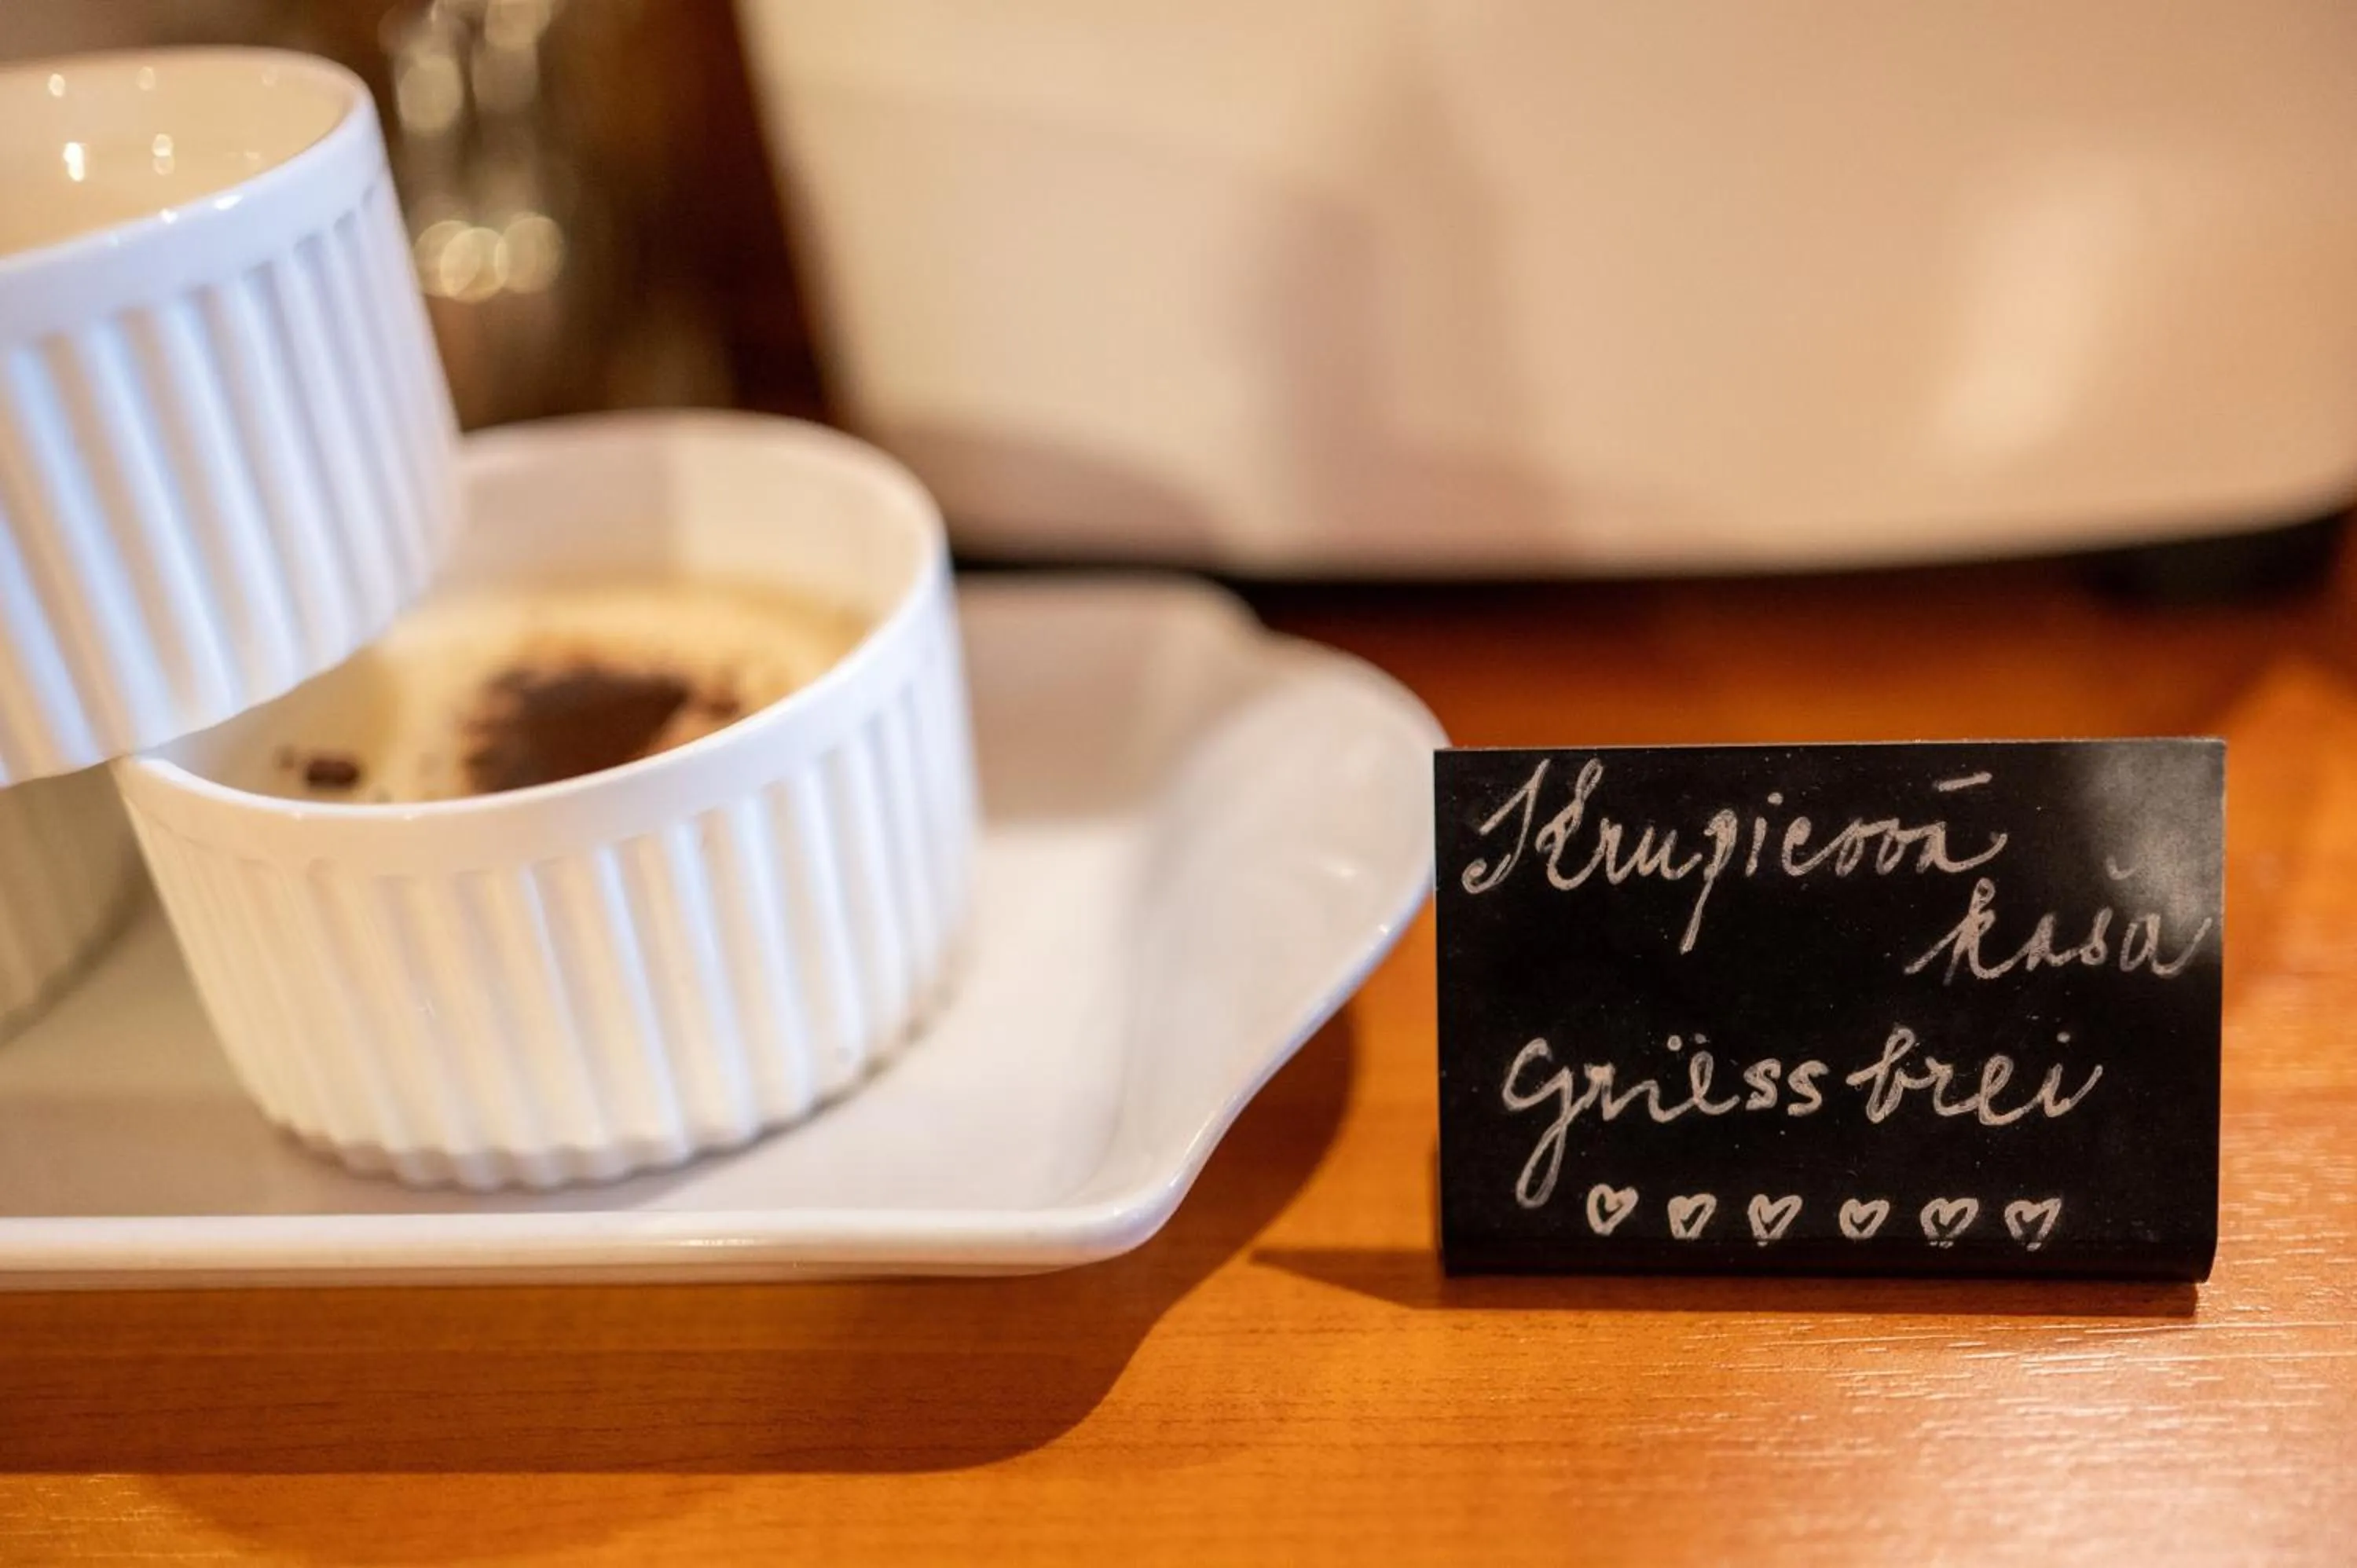 Krupicová
kaša
Griëss brei